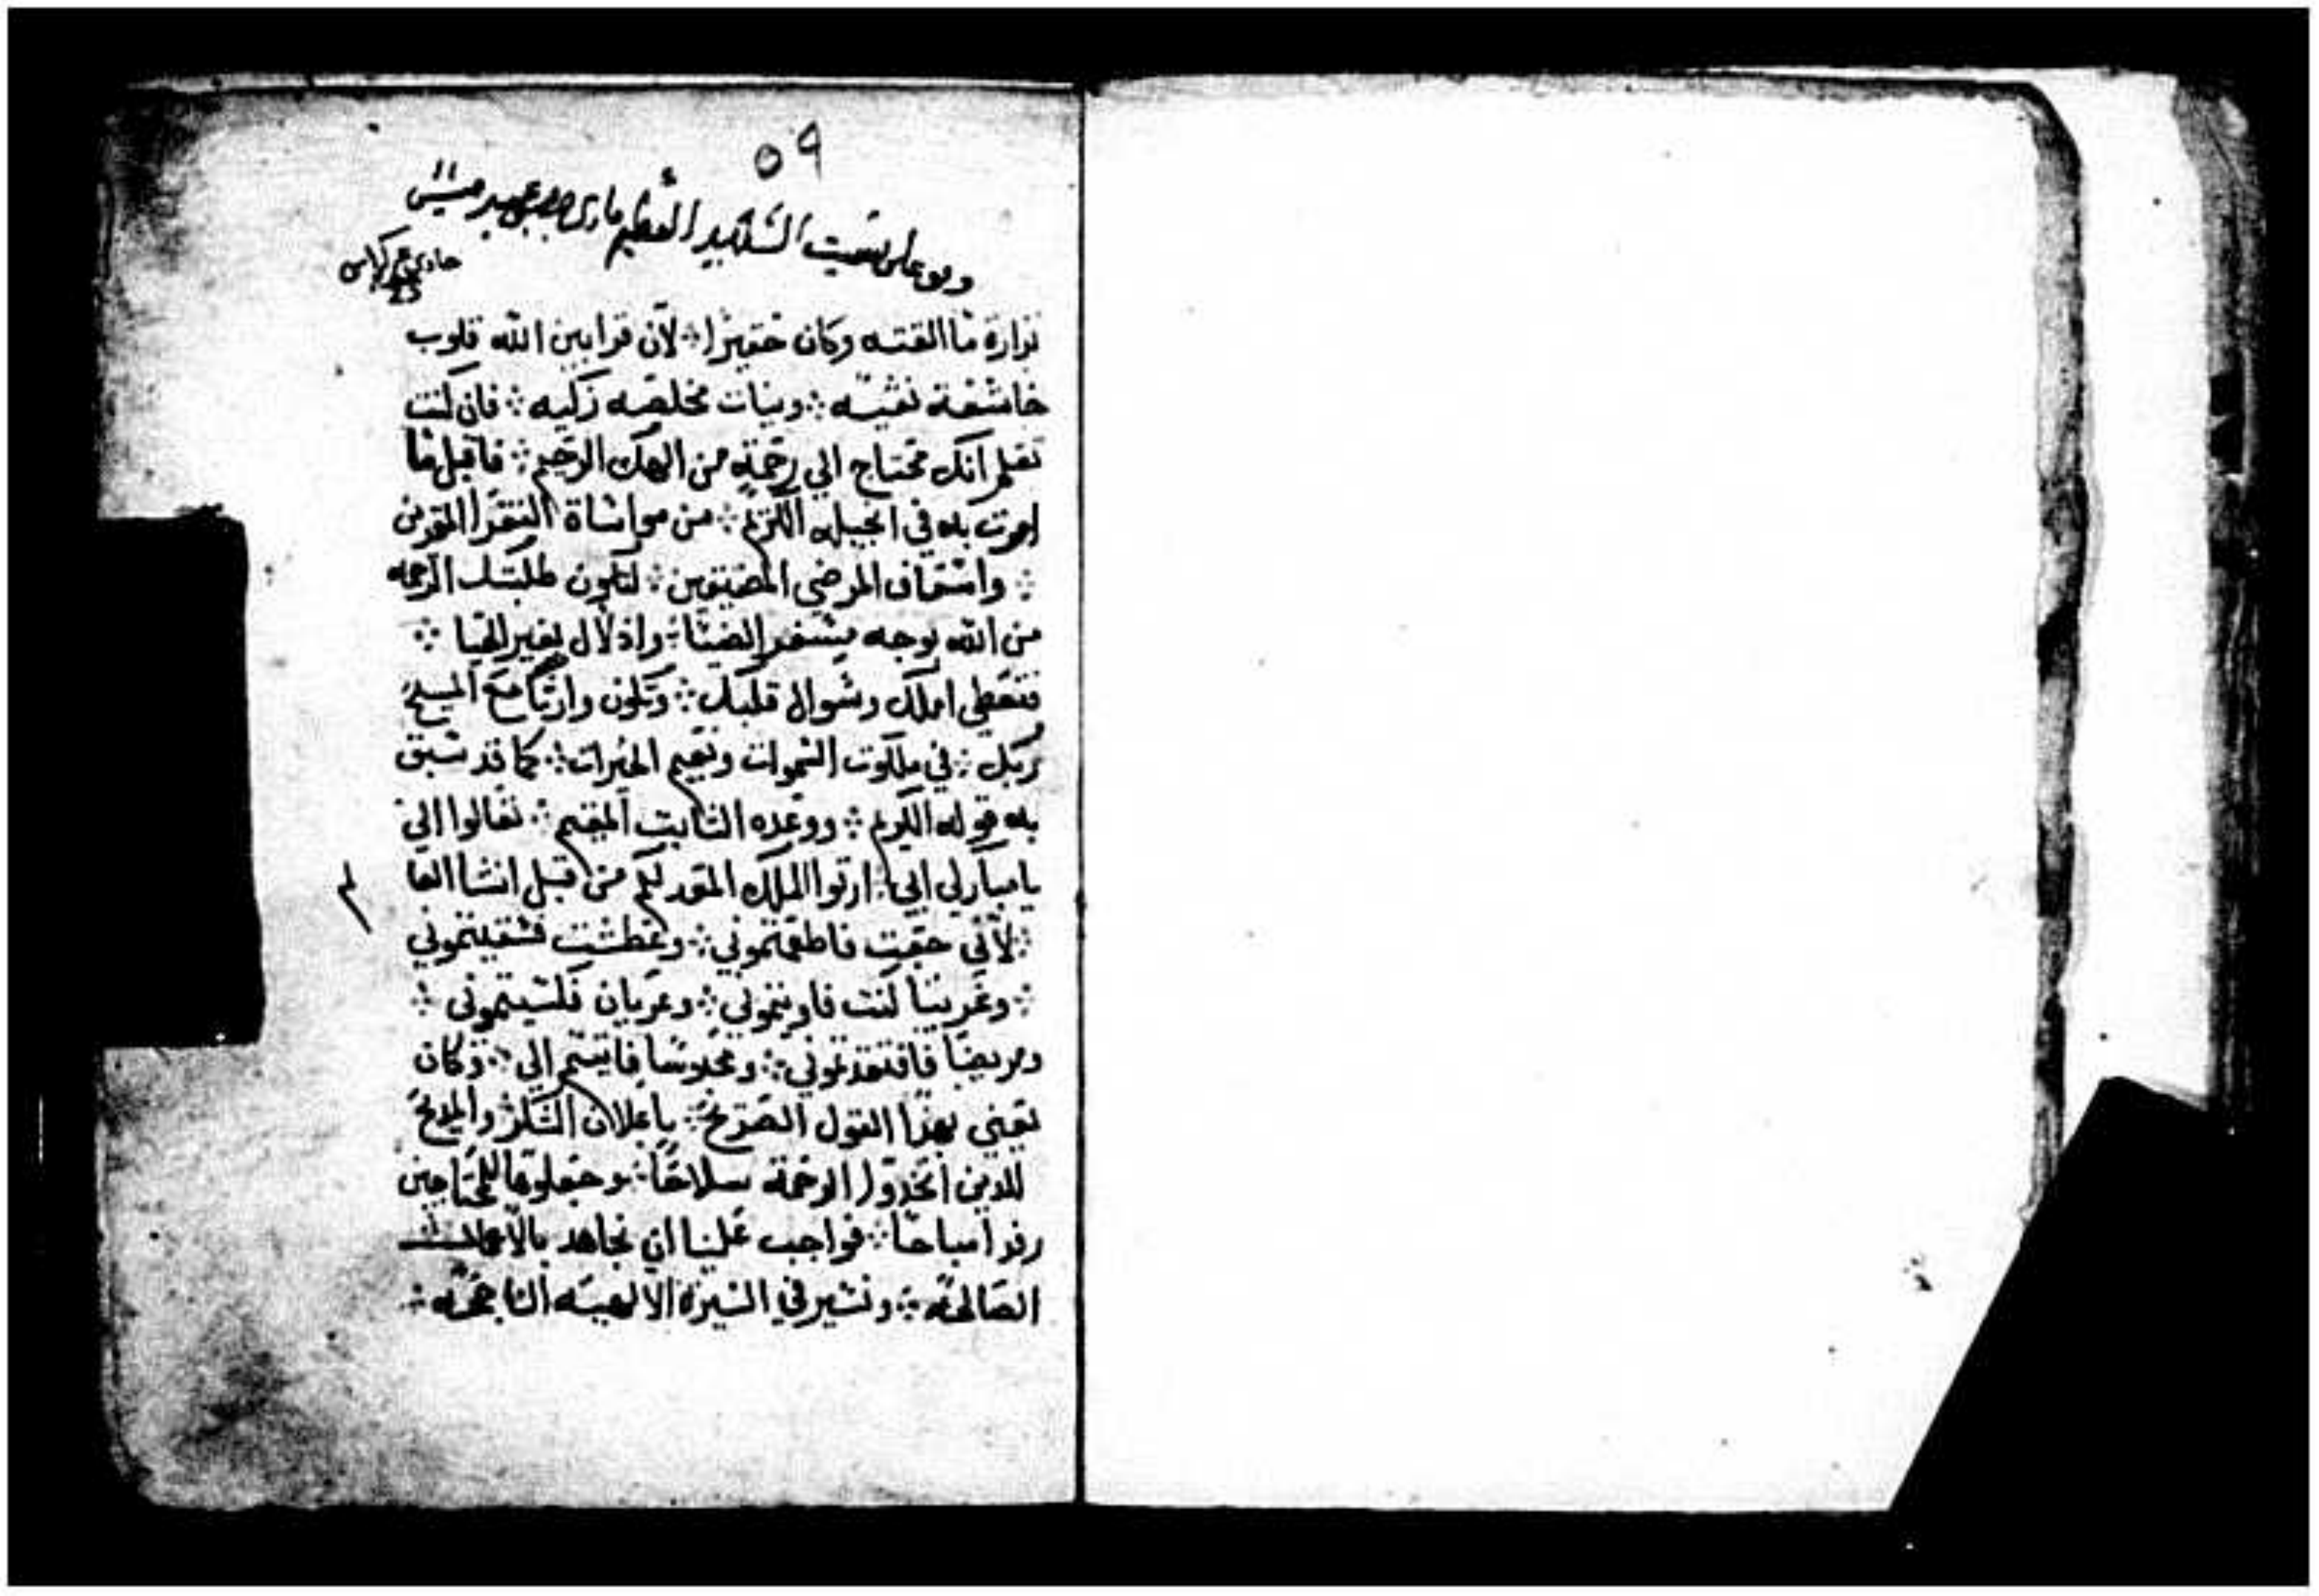 ٥٩
وقف على بيعت الشهيد العظيم ماري جرجس
حادي عشر كراس
نزارة ما القته وكان حقيرا ܀ لان قرابين الله قلوب
خاشعة نقيه ܀ ونيات مخلصه زكيه ܀ فان كنت
تعلم انك محتاج الي رحمة من الهك الرحيم ܀ فاقبل ما
امرت به في انجيله الكريم ܀ من مواساة الفقرا المقوين
܀ واسعاف المرضي المضيقين ܀ لتكون طلبتك الرحمه
من الله بوجه مسفر الضيا ܀ واذلال بغير الحيا ܀
فتعطي املك وسوال قلبك ܀ وتكون وارثا مع المسيح
ربك ܀ في ملكوت السموات ونعيم الخيرات ܀ كما قد سبق
به قوله الكريم ܀ ووعده الثابت المقيم ܀ تعالوا الي
يا مباركي ابي ܀ ارثوا الملك المعد لكم من قبل انشا العا
܀ لاني جعت فاطعمتموني ܀ وعطشت فسقيتموني
܀ وغريبا كنت فاويتموني ܀ وعريان فكسيتموني ܀
ومريضا فافتقدتموني ܀ ومحبوسا فاتيتم الي ܀ وكان
يعني بهذا القول الصريح ܀ باعلان الشكر والمديح
للدين اتخدوا الرحمة سلاحا ܀ وجعلوها للمحتاجين
رفدا مباحا ܀ فواجب علينا ان نجاهد بالاعمال
الصالحه ܀ ونسير في السيرة الالهيه الناجحه ܀